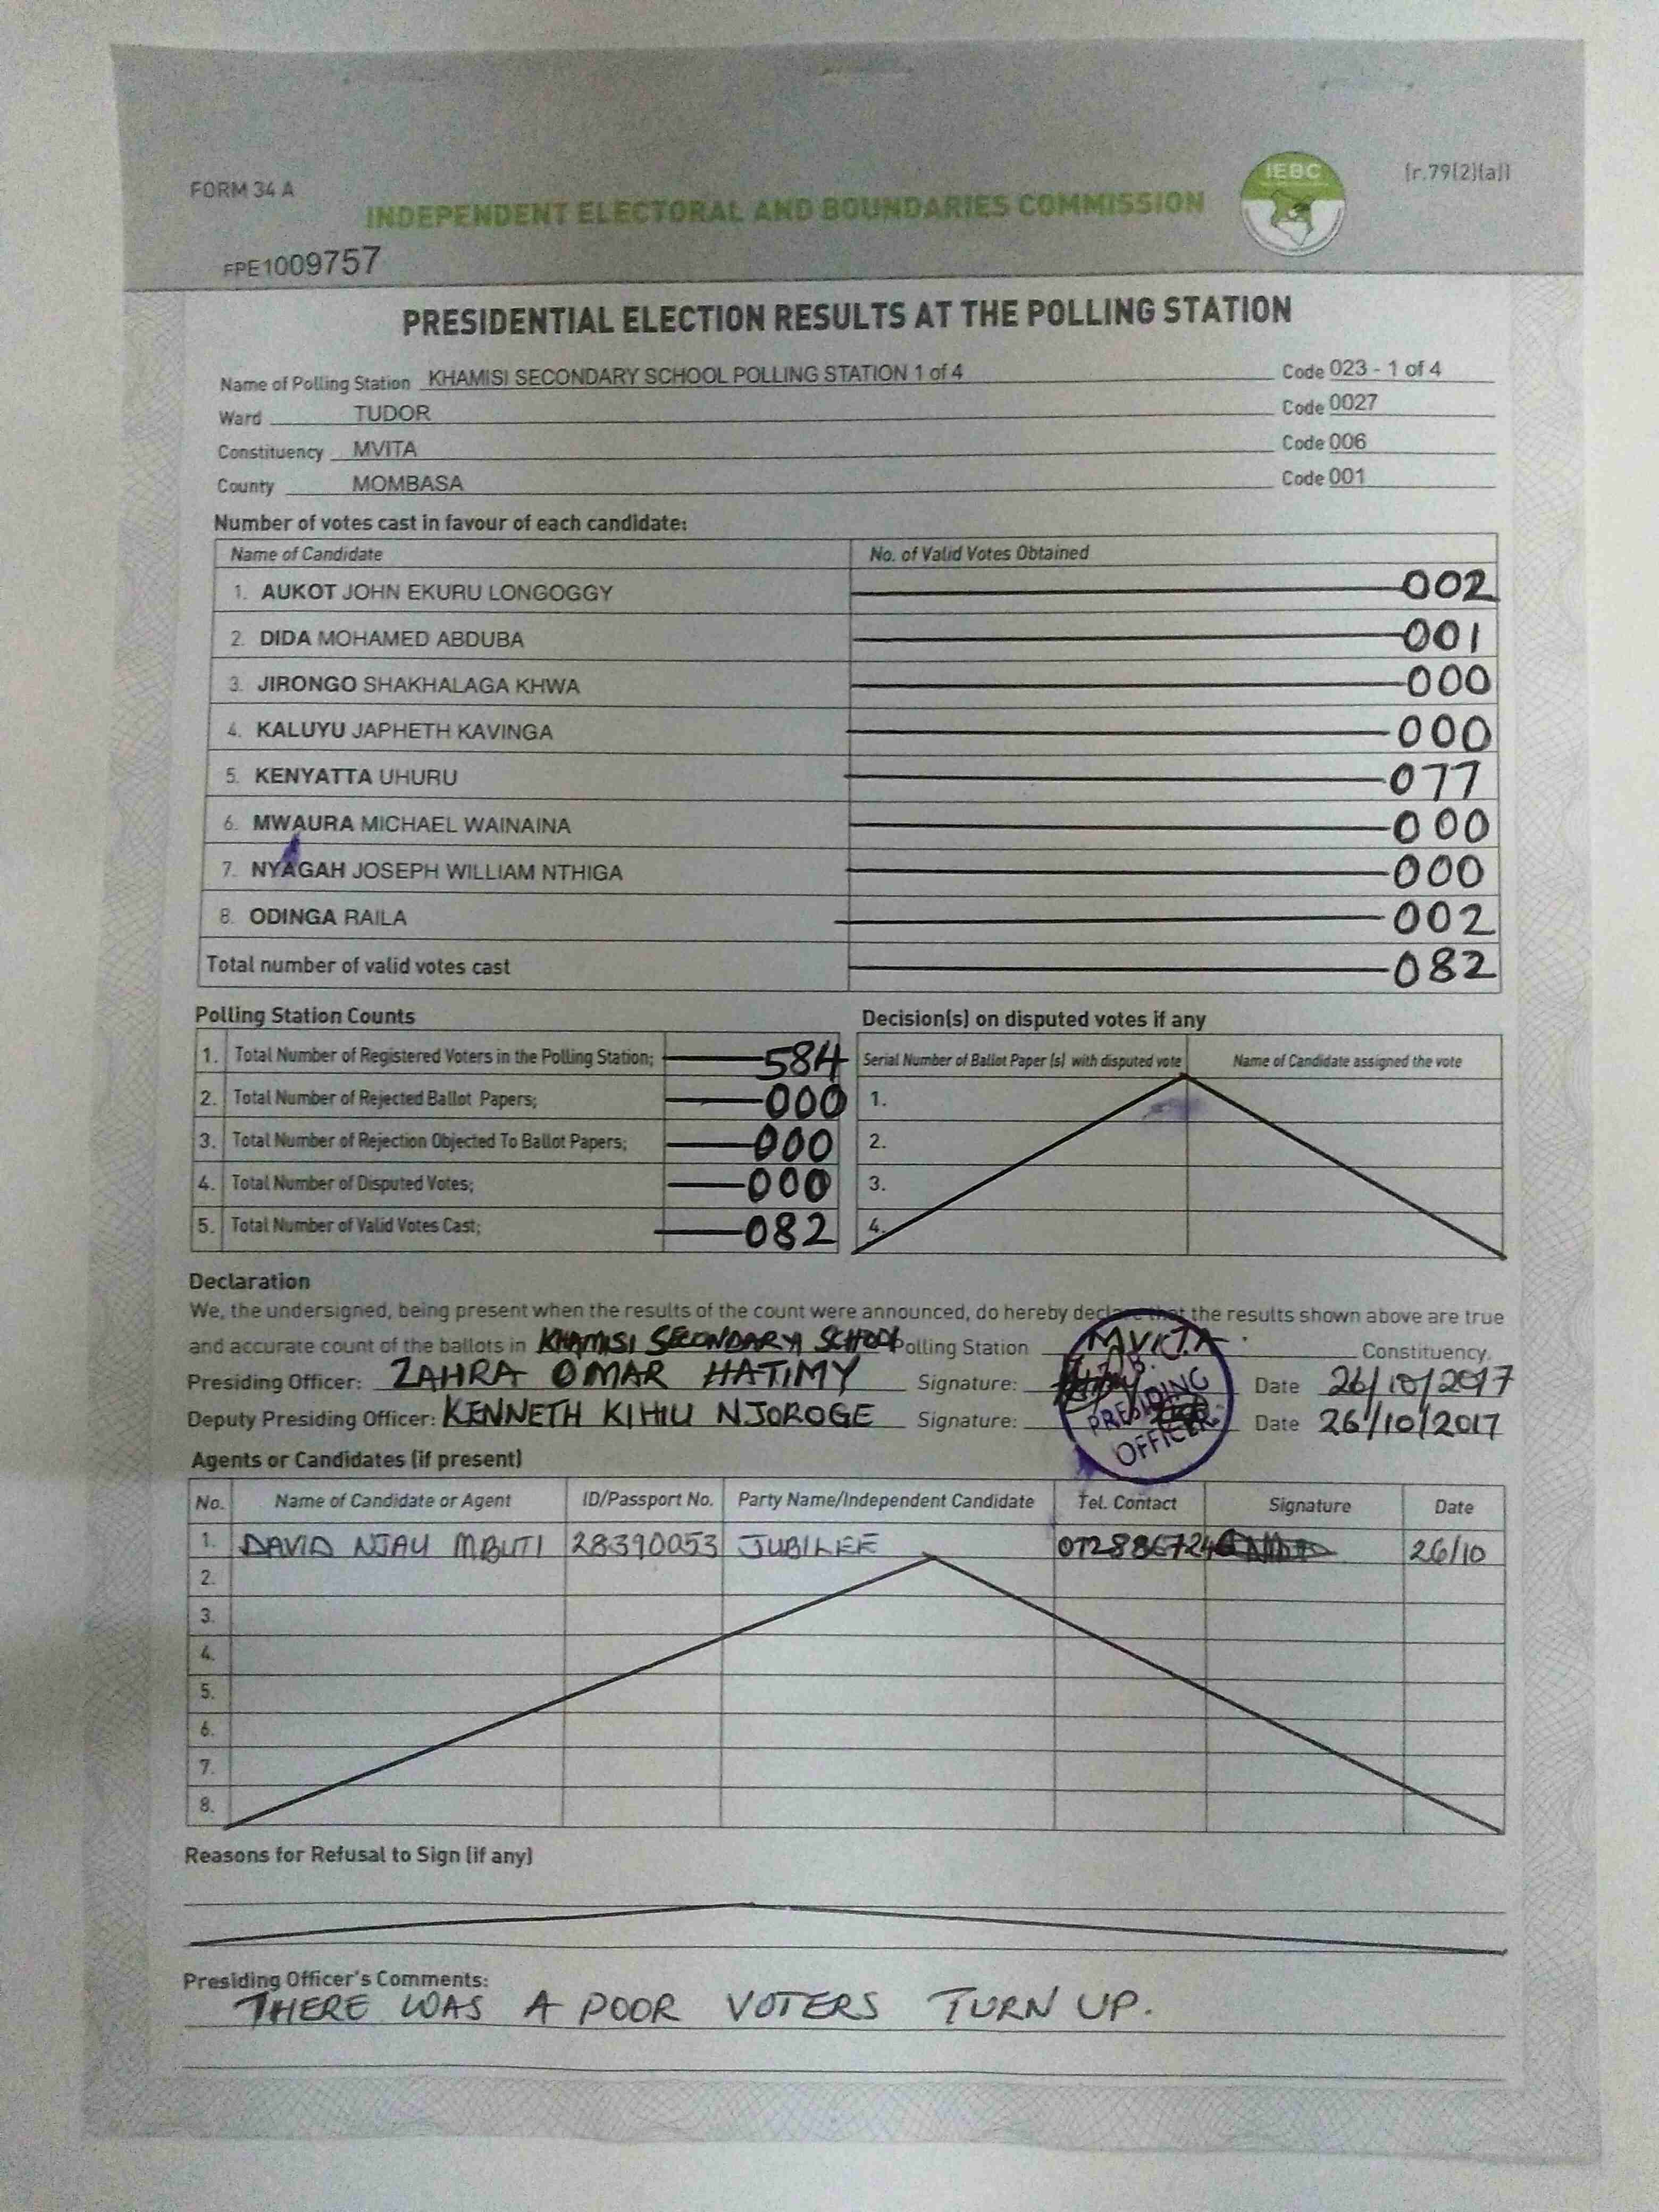 FORM 34 A
IEBC
(r.79(2)(a))
INDEPENDENT ELECTORAL AND BOUNDARIES COMMISSION
FPE1009757
PRESIDENTIAL ELECTION RESULTS AT THE POLLING STATION
Name of Polling Station KHAMISI SECONDARY SCHOOL POLLING STATION 1 of 4 Code 023 - 1 of 4
Ward TUDOR Code 0027
Constituency MVITA Code 006
County MOMBASA Code 001
Number of votes cast in favour of each candidate:
Name of Candidate No. of Valid Votes Obtained
1. AUKOT JOHN EKURU LONGOGGY 002
2. DIDA MOHAMED ABDUBA 001
3. JIRONGO SHAKHALAGA KHWA 000
4. KALUYU JAPHETH KAVINGA 000
5. KENYATTA UHURU 077
6. MWAURA MICHAEL WAINAINA 000
7. NYAGAH JOSEPH WILLIAM NTHIGA 000
8. ODINGA RAILA 002
Total number of valid votes cast 082
Polling Station Counts
1. Total Number of Registered Voters in the Polling Station; 584
2. Total Number of Rejected Ballot Papers; 000
3. Total Number of Rejection Objected To Ballot Papers; 000
4. Total Number of Disputed Votes; 000
5. Total Number of Valid Votes Cast; 082
Decision(s) on disputed votes if any
Serial Number of Ballot Paper (s) with disputed vote Name of Candidate assigned the vote
1.
2.
3.
4.
Declaration
We, the undersigned, being present when the results of the count were announced, do hereby declare that the results shown above are true
and accurate count of the ballots in KHAMISI SECONDARY SCHOOL Polling Station MVITA Constituency.
Presiding Officer: ZAHRA OMAR HATIMY Signature: Date 26/10/2017
Deputy Presiding Officer: KENNETH KIHIU NJOROGE Signature: Date 26/10/2017
PRESIDING
OFFICER
Agents or Candidates (if present)
No. Name of Candidate or Agent ID/Passport No. Party Name/Independent Candidate Tel. Contact Signature Date
1. DAVID NJAU MBUTI 28390053 JUBILEE 26/10
2.
3.
4.
5.
6.
7.
8.
Reasons for Refusal to Sign (if any)
Presiding Officer's Comments:
THERE WAS A POOR VOTERS TURN UP.